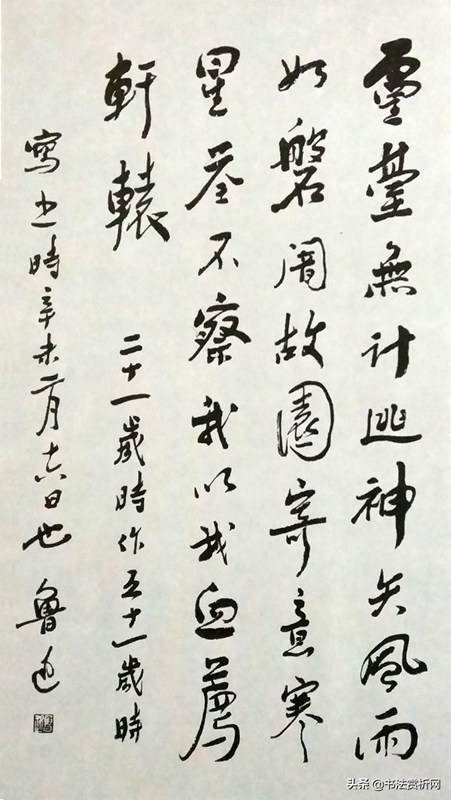 靈臺無計逃神矢風雨
如磐闇故園寄意寒
星荃不察我以我血薦
軒轅
二十一歲時作五十一歲時
寫之時辛未二月十六日也 魯迅
头条 @书法赏析网